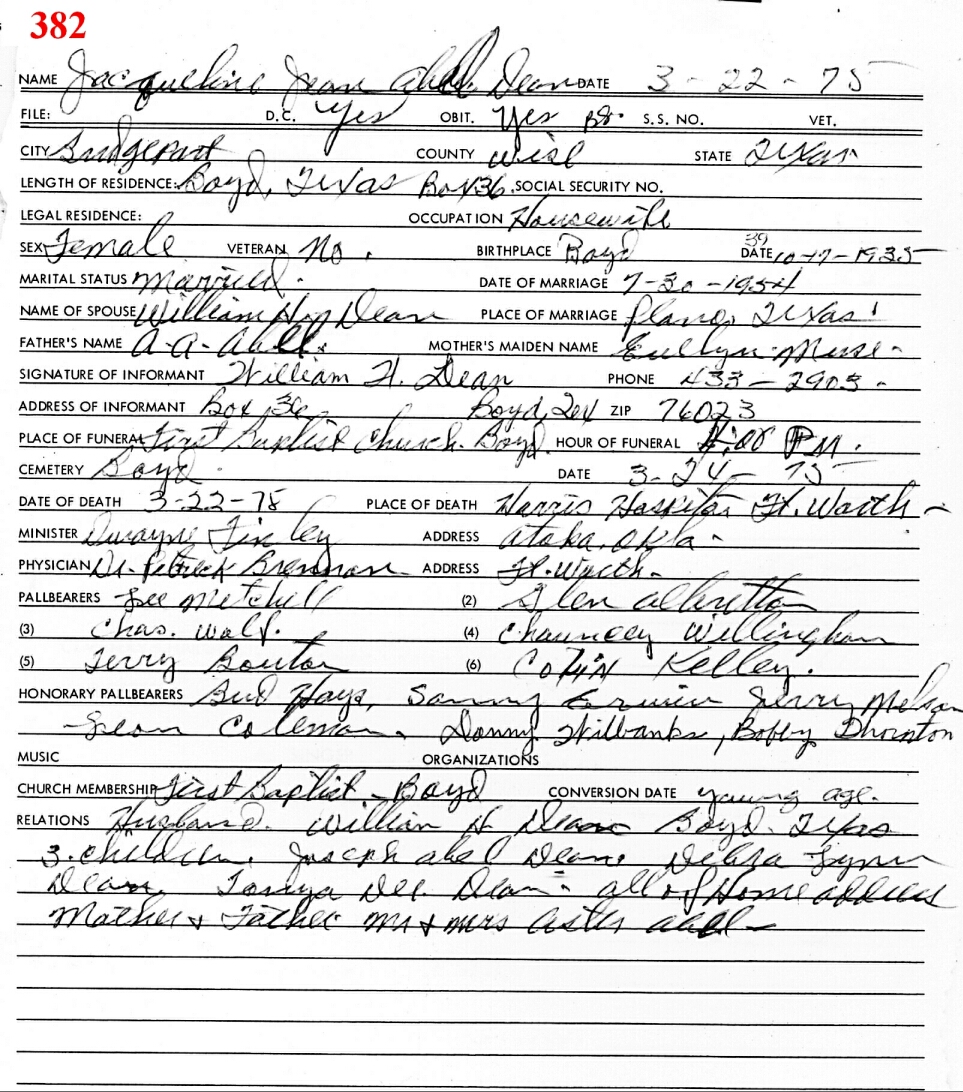 382
NAME Jacqueline Jean Abel Dean DATE 3-22-75
FILE: D.C. Yes OBIT. Yes S.S. NO. VET.
CITY Bridgeport COUNTY Wise STATE Texas
LENGTH OF RESIDENCE: Boyd, Texas Box 36 SOCIAL SECURITY NO.
LEGAL RESIDENCE: OCCUPATION Housewife
SEX Female VETERAN No. BIRTHPLACE Boyd 39 DATE 10-17-1935
MARITAL STATUS Married. DATE OF MARRIAGE 7-30-1954
NAME OF SPOUSE William H. Dean PLACE OF MARRIAGE Plano, Texas
FATHER'S NAME A-A-Abel. MOTHER'S MAIDEN NAME Evelyn Muse-
SIGNATURE OF INFORMANT William H. Dean PHONE 433-2903-
ADDRESS OF INFORMANT Box 36 Boyd, Tex ZIP 76023
PLACE OF FUNERAL First Baptist Church. Boyd HOUR OF FUNERAL 4:00 PM.
CEMETERY Boyd DATE 3-24-75
DATE OF DEATH 3-22-75 PLACE OF DEATH Harris Hospital Ft. Worth-
MINISTER Dwayne Finley ADDRESS Atoka, Okla-
PHYSICIAN Dr. Patrick Brennan ADDRESS Ft. Worth-
PALLBEARERS Lee Mitchell (2) Glen Albritton
(3) Chas. Wolf. (4) Chauncey Willingham
(5) Terry Bouton (6) Colin Kelley.
HONORARY PALLBEARERS Bud Hays, Sammy Erwin Jerry Melson
Leon Coleman. Donny Wilbanks, Bobby Thornton
MUSIC ORGANIZATIONS
CHURCH MEMBERSHIP First Baptist - Boyd CONVERSION DATE young age.
RELATIONS Husband. William H Dean Boyd. Texas
3. children. Joseph Abel Dean, Debra Lynn
Dean, Tonya Dee Dean - all of Home address
Mother & Father Mr & Mrs Aster Abel-